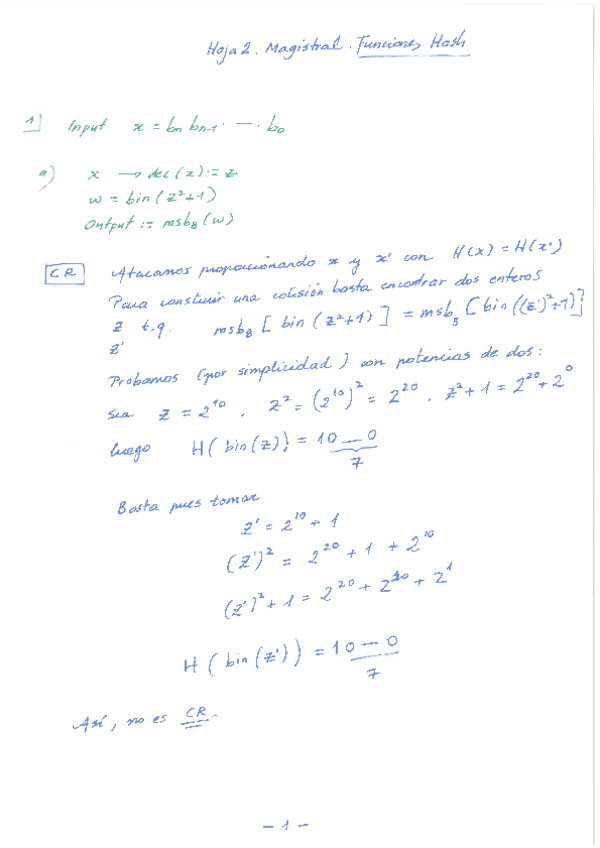 Hoja 2. Magistral. Funciones Hash
1] Input x = bn bn-1 · — · b0
a) x → dec(x) := z
w = bin(z²+1)
Output := msb8(w)
CR Atacamos proporcionando x y x' con H(x) = H(x')
Para construir una colisión basta encontrar dos enteros
z t.q. msb8 [ bin (z²+1) ] = msb8 [ bin ((z')²+1) ]
z'
Probamos (por simplicidad) con potencias de dos:
sea z = 2^10 . z² = (2^10)² = 2^20 . z²+1 = 2^20 + 2^0
luego H( bin(z)) = 10 — 0
7
Basta pues tomar
z' = 2^10 + 1
(z')² = 2^20 + 1 + 2^10
(z')² + 1 = 2^20 + 2^10 + 2^1
H ( bin (z')) = 10 — 0
7
Así, no es CR.
- 1 -